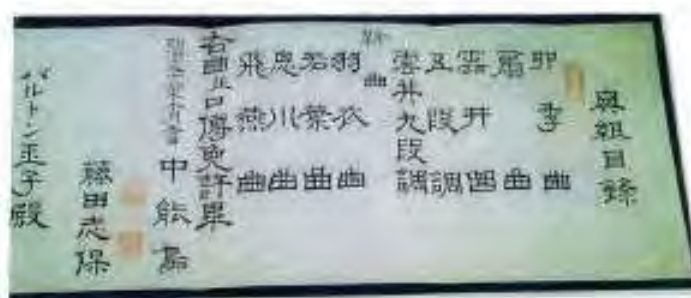 奥組目録
四季曲
扇曲
雲井曲
五段調
雲井九段調
新曲
羽衣曲
若葉曲
思川曲
飛燕曲
右曲口傳許畢
中能島
藤田志保
バルトン玉子殿